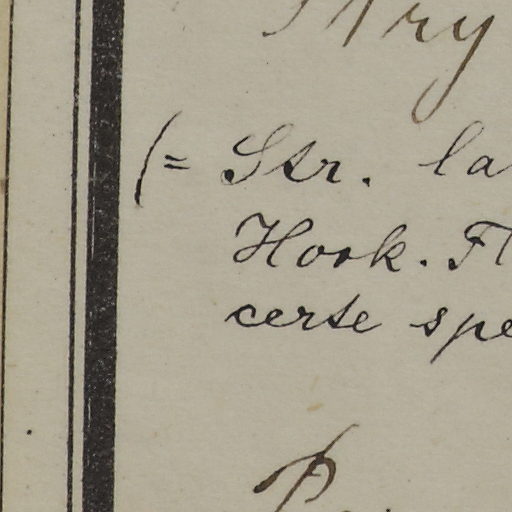 Stry
(= Str. la
Hook. Fl
certe spe